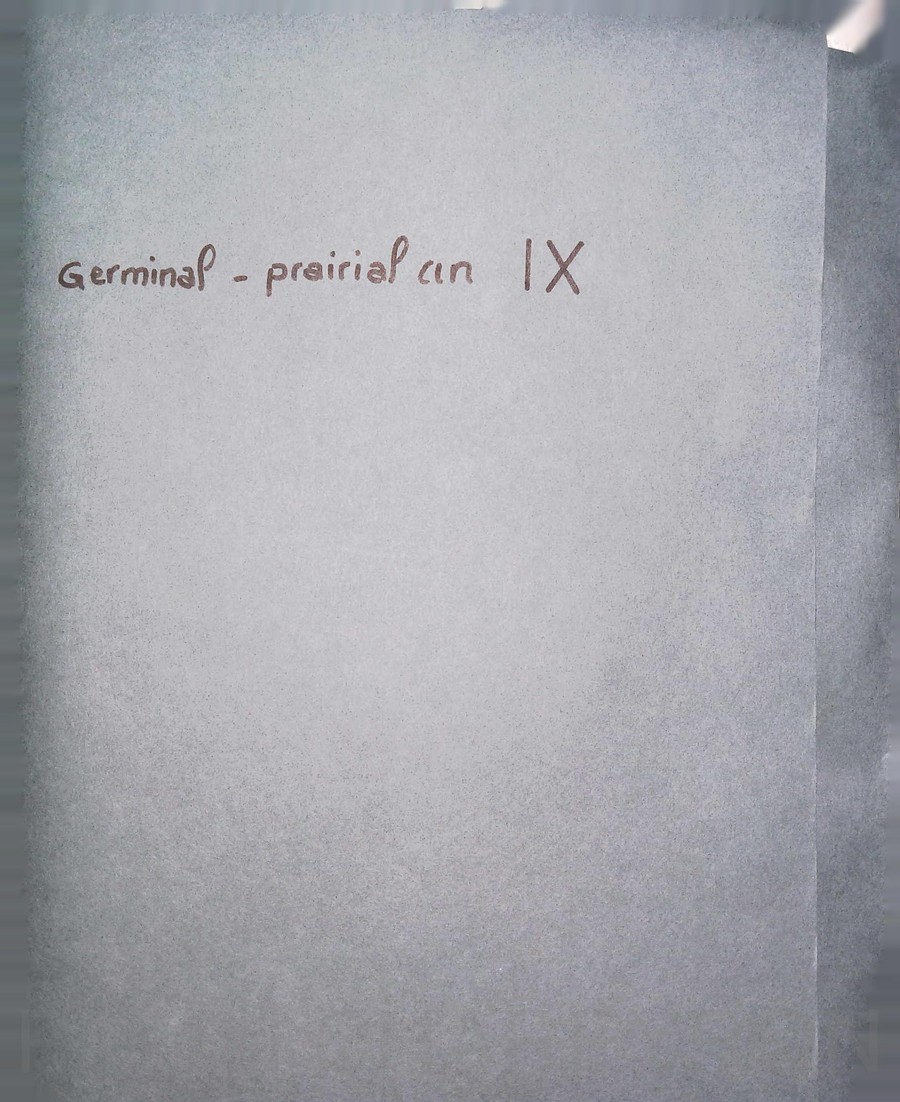 Germinal - prairial an IX